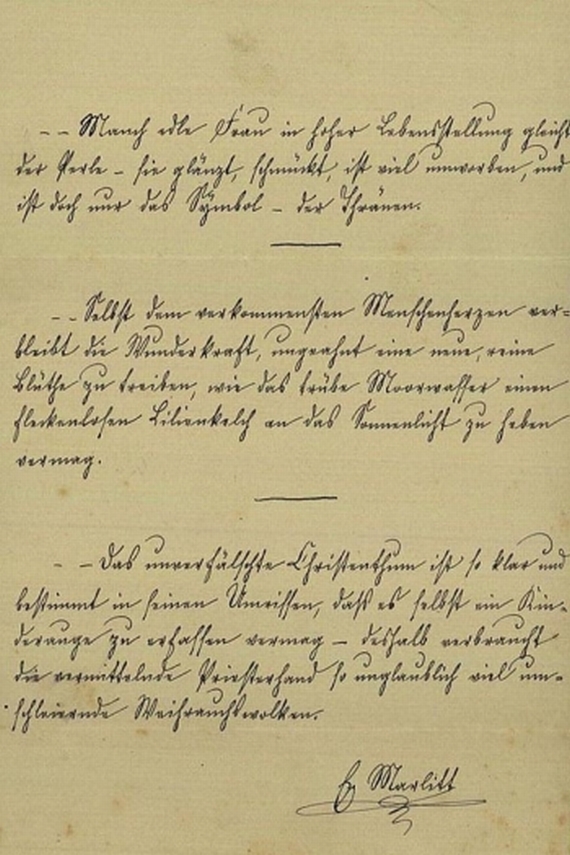 – – Manch edle Frau in hoher Lebensstellung gleicht
der Perle – sie glänzt, schmückt, ist viel umworben, und
ist doch nur das Symbol – der Thränen.
– – Selbst dem verkommensten Menschenherzen ver-
bleibt die Wunderkraft, ungeahnt eine neue, reine
Blüthe zu treiben, wie das trübe Moorwasser einen
fleckenlosen Lilienkelch an das Sonnenlicht zu heben
vermag.
– – Das unverfälschte Christenthum ist so klar und
bestimmt in seinen Umrissen, daß es selbst ein Kin-
derauge zu erfassen vermag – deshalb verbraucht
die vermittelnde Priesterhand so unglaublich viel um-
schleiernde Weihrauchswolken.
E. Marlitt